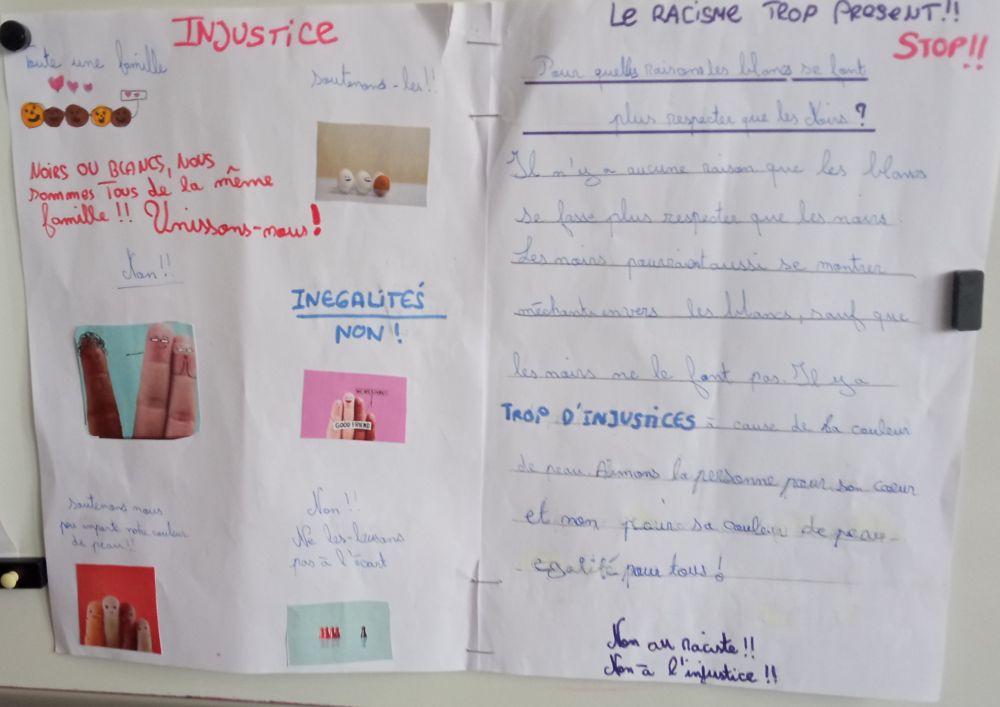 INJUSTICE
Toute une famille
soutenons-les!!
NOIRS OU BLANCS, NOUS
sommes Tous de la même
famille!! Unissons-nous!
Non!!
INEGALITÉS
NON!
GOOD FRIEND
Soutenons nous
peu importe notre couleur
de peau!!
Non!!
Ne les laissons
pas à l'écart
LE RACISME TROP PRESENT!!
STOP!!
Pour quelles raisons les blancs se font
plus respecter que les Noirs?
Il n'y a aucune raison que les blancs
se fasse plus respecter que les noirs.
Les noirs pourraient aussi se montrer
méchant envers les blancs, sauf que
les noirs ne le font pas. Il y a
TROP D'INJUSTICES à cause de la couleur
de peau. Aimons la personne pour son coeur
et non pour sa couleur de peau-
- egalité pour tous!
Non au raciste!!
Non à l'injustice!!